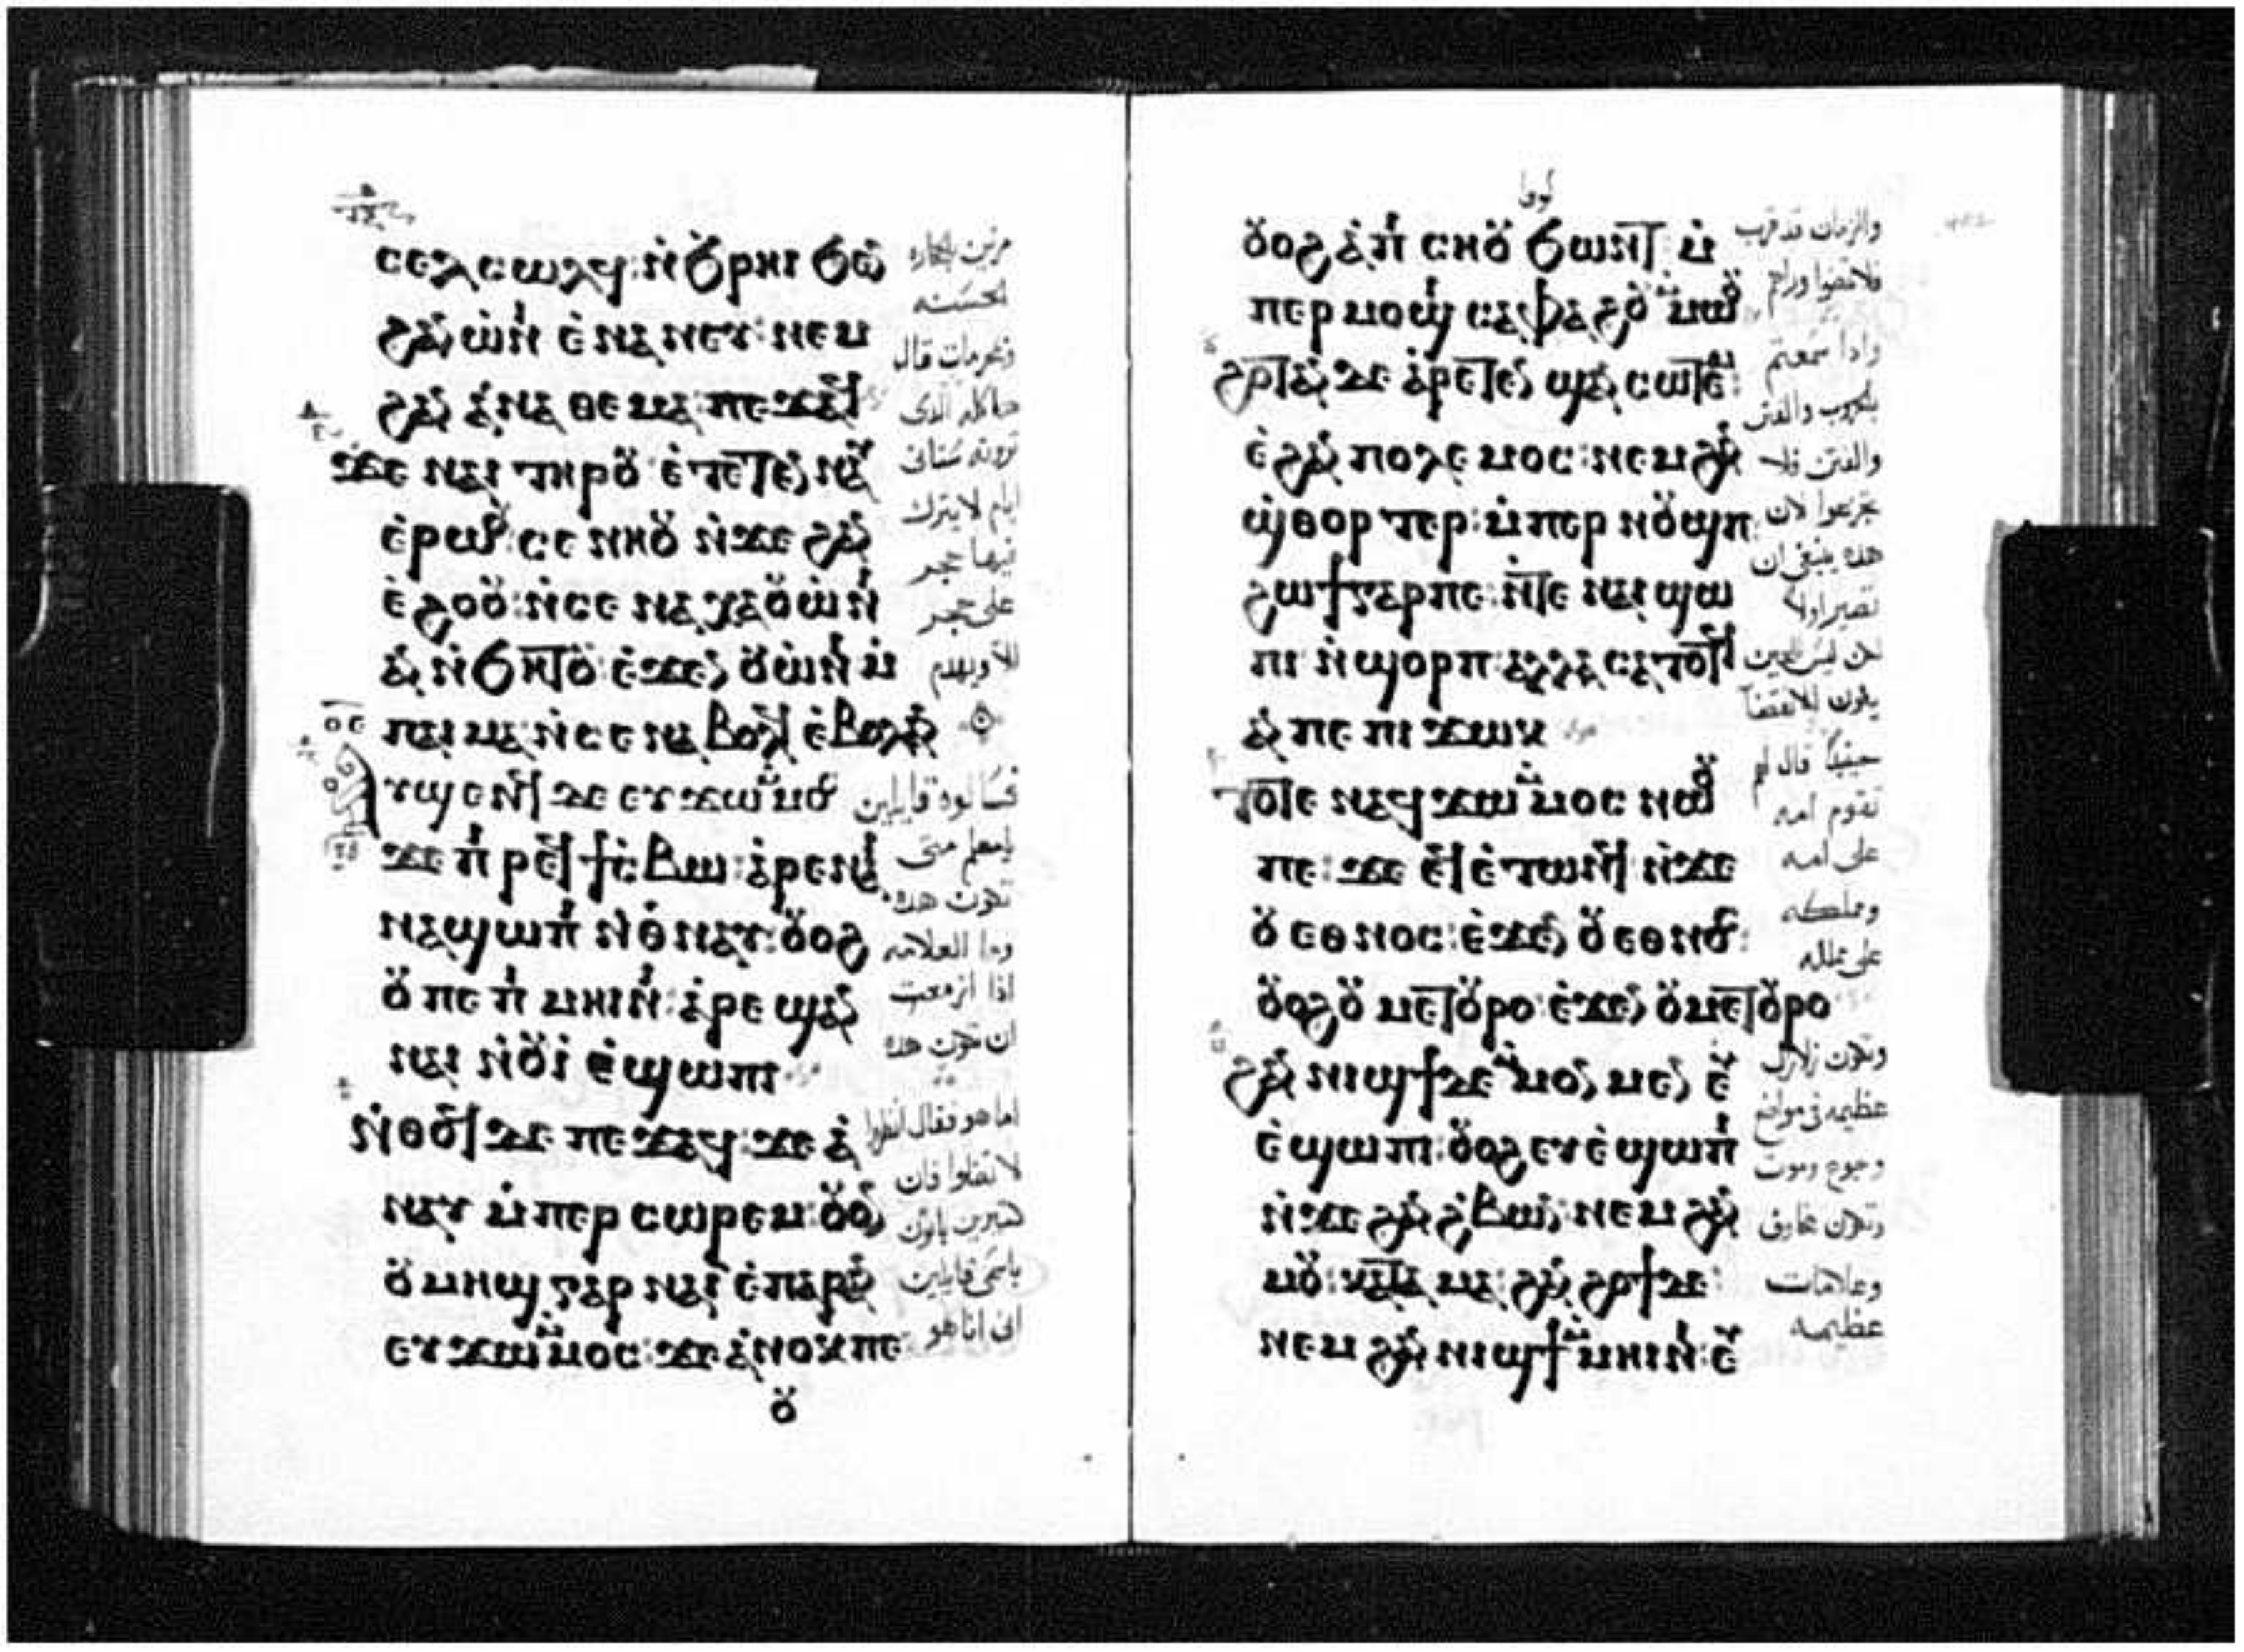 ⲥⲉⲗⲥⲱⲗϥ: ⲛ̇ϧⲣⲏⲓ ϧⲉⲛ
ϩⲁⲛ ⲱ̇ⲛⲓ ⲉ̇ⲛⲁⲛⲉⲩ: ⲛⲉⲙ
ϩⲁⲛ ⲁ̇ⲛⲁⲑⲉⲙⲁ: ⲡⲉϫⲁϥ
ϫⲉ ⲛⲁⲓ ⲧⲏⲣⲟⲩ ⲉ̇ⲧⲉⲧⲉⲛⲛⲁⲩ
ⲉ̇ⲣⲱⲟⲩ: ⲥⲉ ⲛⲏⲟⲩ ⲛ̇ϫⲉ ϩⲁⲛ
ⲉ̇ϩⲟⲟⲩ: ⲛ̇ⲥⲉ ⲛⲁⲭⲁ ⲟⲩⲱ̇ⲛⲓ
ⲁⲛ ⲛ̇ϧⲏⲧⲟⲩ: ⲉ̇ϫⲉⲛ ⲟⲩⲱ̇ⲛⲓ ⲙ̇
ⲡⲁⲓ ⲙⲁ: ⲛ̇ⲥⲉ ⲛⲁ ⲃⲟⲗϥ ⲉ̇ⲃⲟⲗ ⲁⲛ
ⲁⲩϣⲉⲛϥ ⲇⲉ ⲉⲩϫⲱ ⲙ̇ⲙⲟⲥ
ϫⲉ ⲡⲓ ⲣⲉϥϯⲥ̇ⲃⲱ: ⲁ̇ⲣⲉ ⲛⲁⲓ
ⲛⲁϣⲱⲡⲓ ⲛ̇ⲑⲛⲁⲩ: ⲟⲩⲟϩ
ⲟⲩ ⲡⲉ ⲡⲓ ⲙⲏⲓⲛⲓ: ⲁ̇ⲣⲉ ϣⲁⲛ
ⲛⲁⲓ ⲛ̇ⲟⲩⲓ̇ ⲉ̇ϣⲱⲡⲓ
ⲛ̇ⲑⲟϥ ⲇⲉ ⲡⲉϫⲁϥ: ϫⲉ ⲁ̇
ⲛⲁⲩ ⲙ̇ⲡⲉⲣ ⲥⲱⲣⲉⲙ: ⲟⲩⲟⲛ
ⲟⲩ ⲙⲏϣ ⲅⲁⲣ ⲛⲁⲓ̇ ⲉ̇ⲡⲁⲣⲁⲛ
ⲉⲩϫⲱ ⲙ̇ⲙⲟⲥ: ϫⲉ ⲁ̇ⲛⲟⲕ ⲡⲉ
ⲟⲩ
الحسنه
ومحرمات قال
ايام لا يترك
فيها حجر
على حجر
فسالوه قايلين
يا معلم متى
تكون هده
وما العلامه
اذا ازمعت
ان تكون هده
اما هو فقال انظروا
لا تضلوا فان
كثيرين ياتون
باسمى قايلين
انى انا هو
لوقا
ⲟⲩⲟϩ ⲁ̇ⲡⲓ ⲥⲏⲟⲩ ϧⲱⲛⲧ ⲙ̇
ⲡⲉⲣ ⲙⲟϣⲓ ⲥⲁⲫⲁϩⲟⲩ ⲙ̇ⲙⲱⲟⲩ
ϩⲟⲧⲁⲛ ⲇⲉ ⲁ̇ⲣⲉⲧⲉⲛ ϣⲁⲛ ⲥⲱⲧⲉⲙ
ⲉ̇ϩⲁⲛ ⲡⲟⲗⲉⲙⲟⲥ: ⲛⲉⲙ ϩⲁⲛ
ϣ̇ⲑⲟⲣⲧⲉⲣ: ⲙ̇ⲡⲉⲣ ⲛⲟⲩϣⲡ
ϩⲱϯ ⲅⲁⲣ ⲡⲉ: ⲛ̇ⲧⲉ ⲛⲁⲓ ϣⲱ
ⲡⲓ ⲛ̇ϣⲟⲣⲡ: ⲁⲗⲗⲁ ⲥⲁⲧⲟⲧϥ
ⲁⲛ ⲡⲉ ⲡⲓ ϫⲱⲕ
ⲧⲟⲧⲉ ⲛⲁϥϫⲱ ⲙ̇ⲙⲟⲥ ⲛⲱⲟⲩ
ⲡⲉ: ϫⲉ ⲉϥⲉ̇ⲧⲱⲛϥ ⲛ̇ϫⲉ
ⲟⲩ ⲉⲑⲛⲟⲥ: ⲉ̇ϫⲉⲛ ⲟⲩ ⲉⲑⲛⲟⲥ:
ⲟⲩⲟϩ ⲟⲩ ⲙⲉⲧⲟⲩⲣⲟ: ⲉ̇ϫⲉⲛ ⲟⲩⲙⲉⲧⲟⲩⲣⲟ
ϩⲁⲛ ⲛⲓϣϯ ⲇⲉ ⲙ̇ⲙⲟⲛⲙⲉⲛ ⲉⲩ
ⲉ̇ϣⲱⲡⲓ: ⲟⲩⲟϩ ⲉⲩⲉ̇ϣⲱⲡⲓ
ⲛ̇ϫⲉ ϩⲁⲛ ϩ̇ⲃⲱⲛ: ⲛⲉⲙ ϩⲁⲛ
ⲙⲟⲩ: ⲕⲁⲧⲁ ⲙⲁ: ϩⲁⲛ ϩⲟϯ ⲇⲉ:
ⲛⲉⲙ ϩⲁⲛ ⲛⲓϣϯ ⲙ̇ⲙⲏⲓⲛⲓ: ⲉⲩ
والزمان قد قرب
وادا سمعتم
بالحروب والفتن
والفتن فلا
تجزعوا لان
هده ينبغى ان
تصير اولا
حينيدا قال لهم
تقوم امه
على امه
ومملكه
على مملكه
وتكون زلازل
عظيمه فى مواضع
وجوع وموت
وتكون مخاوف
وعلامات
عظيمه